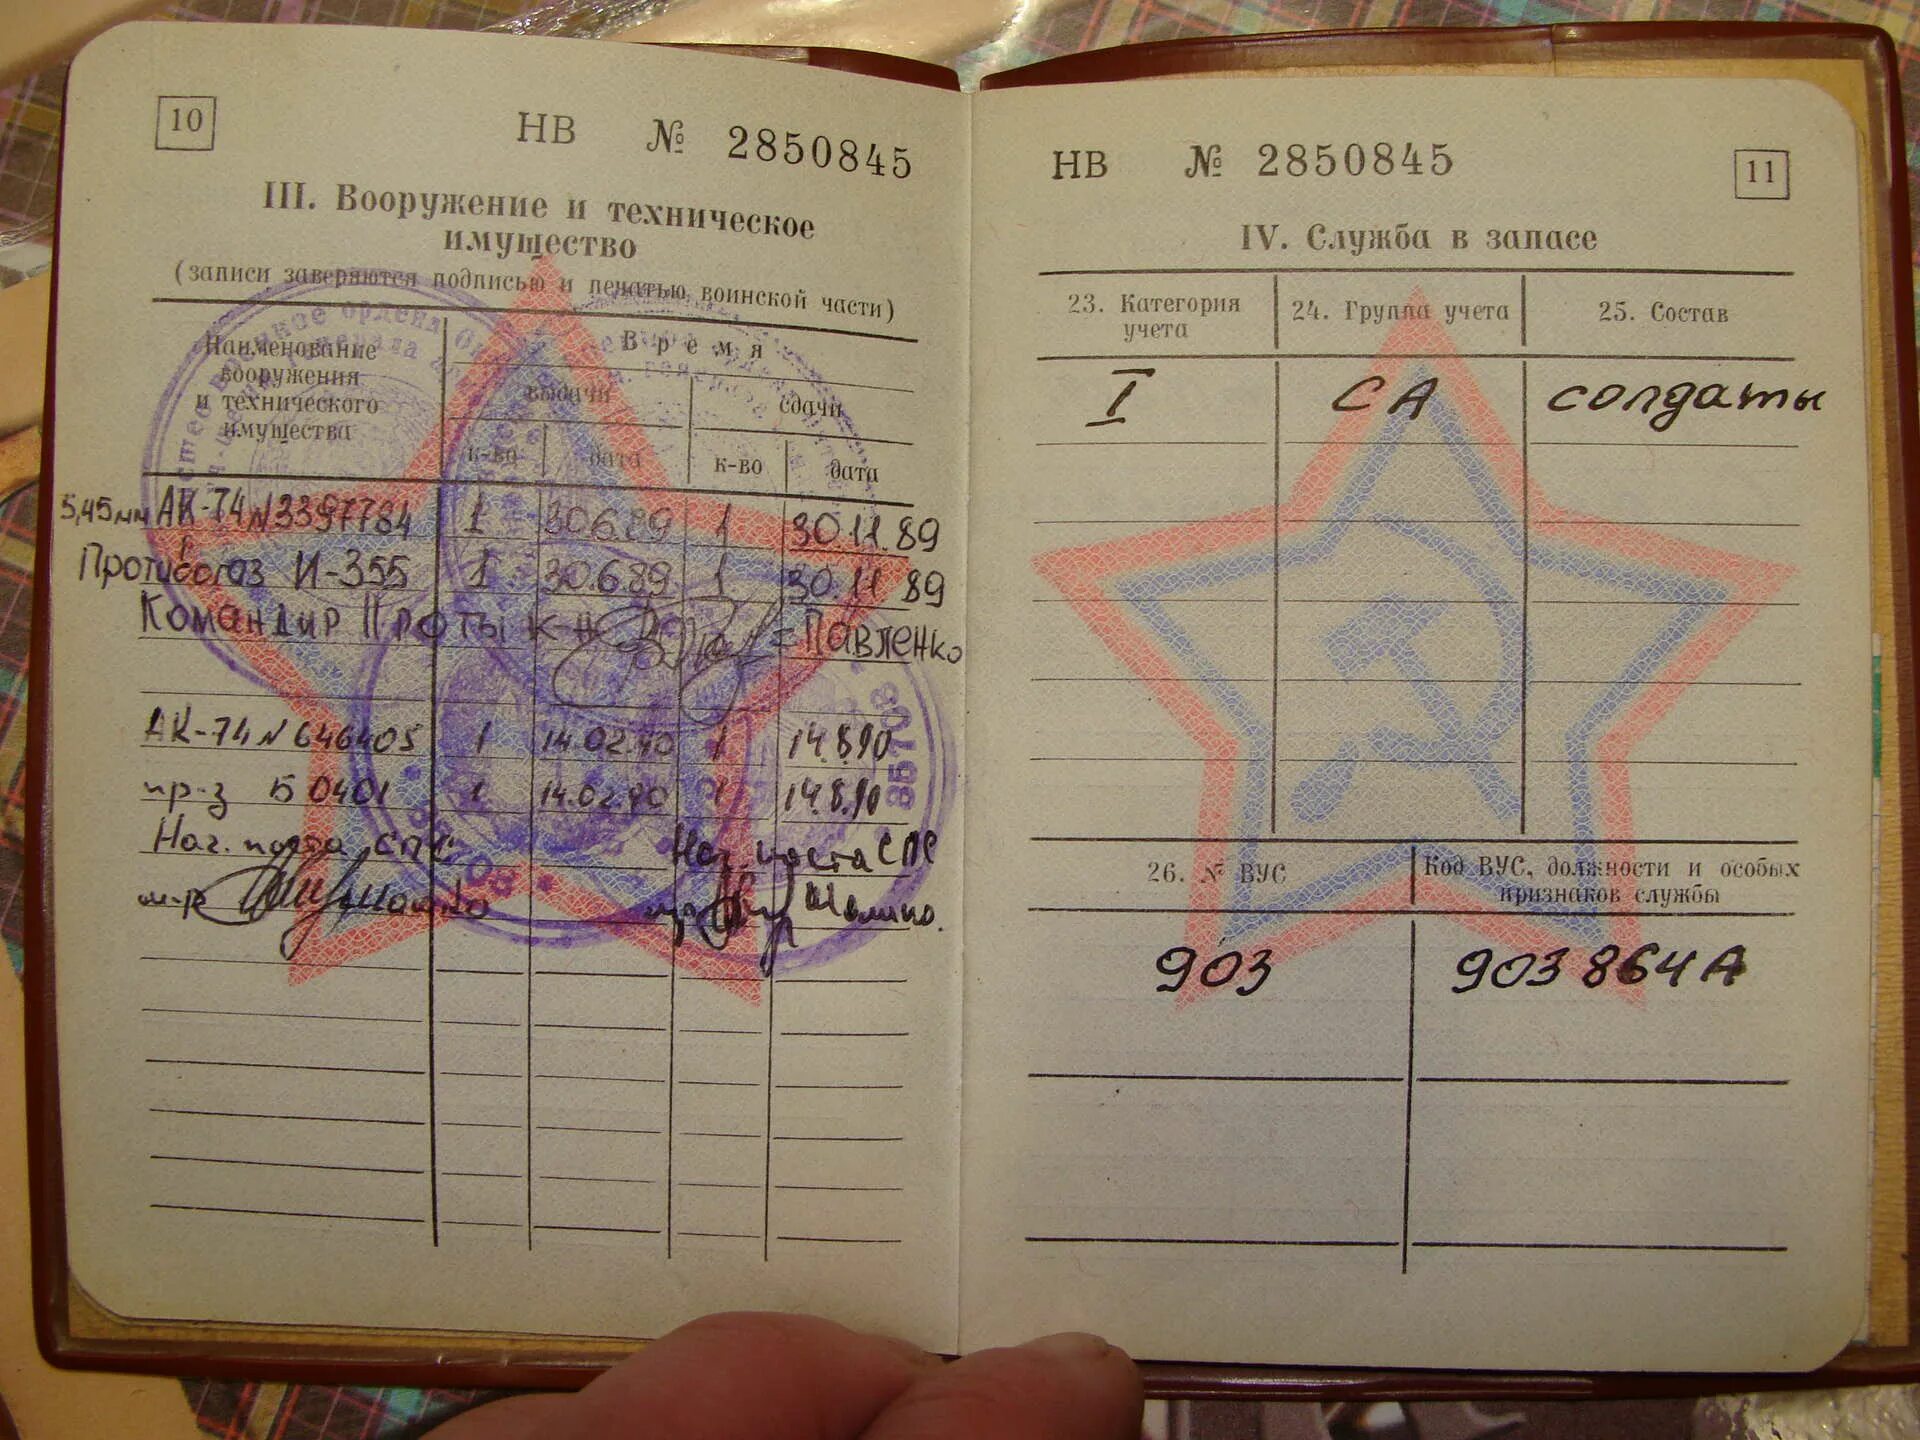 10
НВ № 2850845
III. Вооружение и техническое
имущество
(записи заверяются подписью и печатью воинской части)
Наименование
вооружения
и технического
имущества
Время
выдачи
сдачи
к-во
дата
к-во
дата
5,45мм АК-74 N3397784 1 30.6.89 1 30.11.89
Противогаз И-355 1 30.6.89 1 30.11 89
Командир Проты к-н = Павленко
АК-74 N 646405 1 14.02.90 1 14.8.90
пр-з Б 0401 1 14.02.90 1 14.8.90
Нач. поста СПС
Нач. поста СПС
м-р
НВ № 2850845
11
IV. Служба в запасе
23. Категория
учета
24. Группа учета
25. Состав
I СА солдаты
26. № ВУС
Код ВУС, должности и особых
признаков службы
903 903 864А